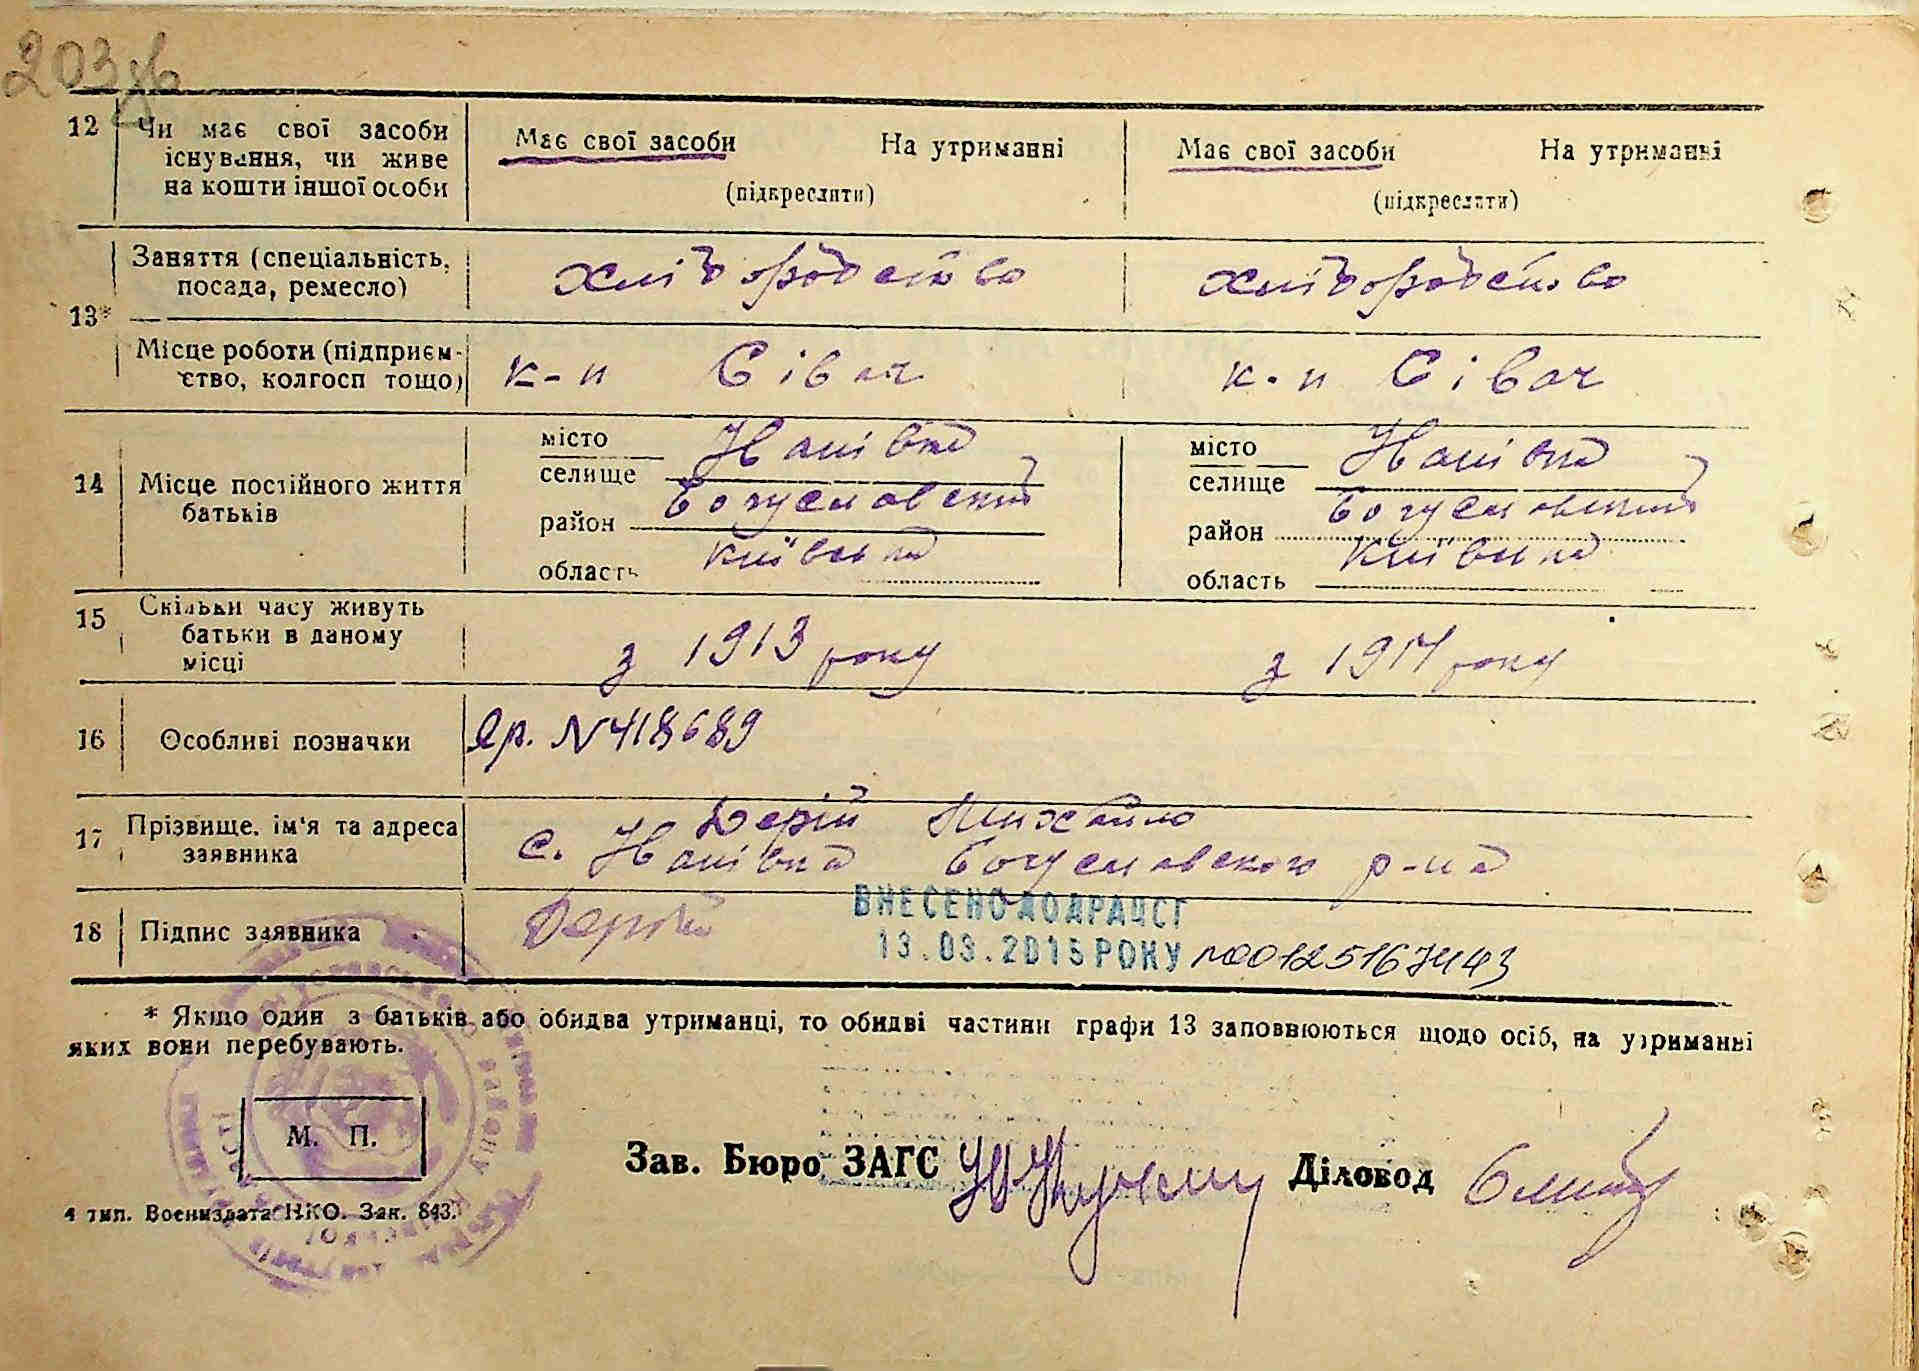 203зв
12 Чи має свої засоби існування, чи живе на кошти іншої особи
Має свої засоби На утриманні
(підкреслити)
Має свої засоби На утриманні
(підкреслити)
13* Заняття (спеціальність, посада, ремесло)
хліборобство хліборобство
Місце роботи (підприємство, колгосп тощо)
к-п Сівач к-п Сівач
14 Місце постійного життя батьків
місто
селище
район Богуславський
область Київська
місто
селище
район Богуславський
область Київська
15 Скільки часу живуть батьки в даному місці
з 1913 року з 1917 року
16 Особливі позначки
№ 418689
17 Прізвище, ім'я та адреса заявника
Дерій Михайло
с. Богуславского р-на
18 Підпис заявника
Дерій
ВНЕСЕНО ДО ДРАЦСГ
13.03.2015 РОКУ №00125167443
* Якщо один з батьків або обидва утриманці, то обидві частини графи 13 заповнюються щодо осіб, на утриманні
яких вони перебувають.
М. П.
Зав. Бюро ЗАГС Діловод
4 тип. Воениздата НКО. Зак. 843.